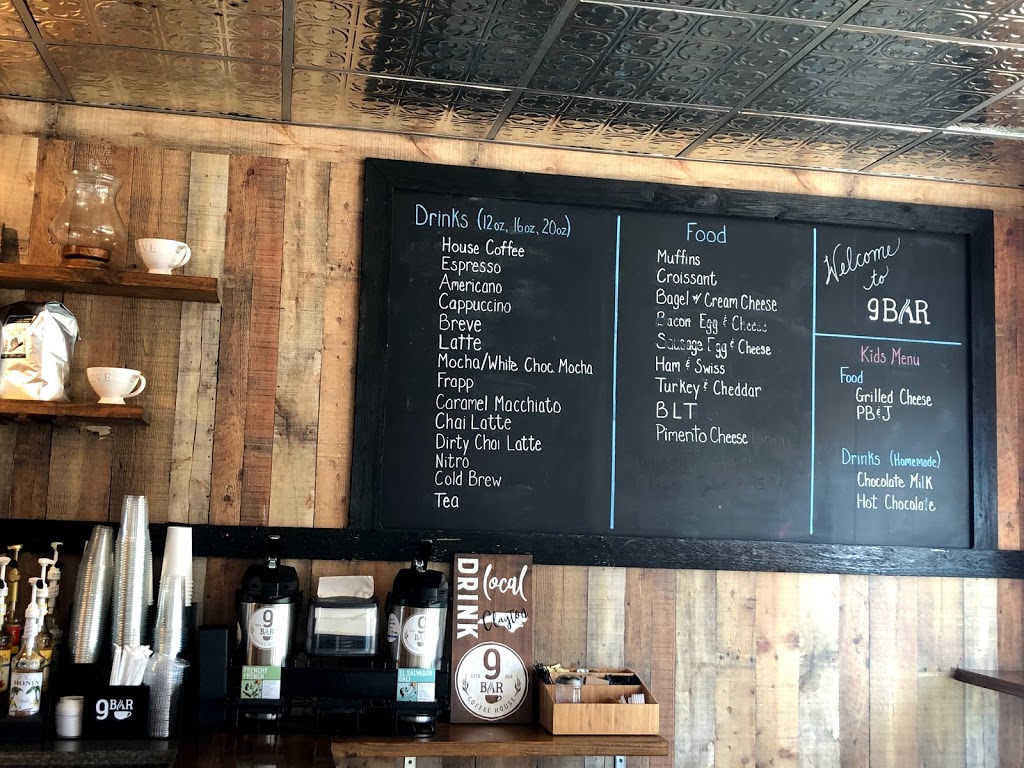 Drinks (12oz, 16oz, 20oz)
House Coffee
Espresso
Americano
Cappuccino
Breve
Latte
Mocha/White Choc. Mocha
Frapp
Caramel Macchiato
Chai Latte
Dirty Chai Latte
Nitro
Cold Brew
Tea
Food
Muffins
Croissant
Bagel w/ Cream Cheese
Bacon Egg & Cheese
Sausage Egg & Cheese
Ham & Swiss
Turkey & Cheddar
BLT
Pimento Cheese
Welcome
to
9BAR
Kids Menu
Food
Grilled Cheese
PB&J
Drinks (Homemade)
Chocolate Milk
Hot Chocolate
DRINK
local
Clayton
9
BAR
COFFEE HOUSE
9
BAR
9
BAR
EL SALVADOR
9BAR
MONIN